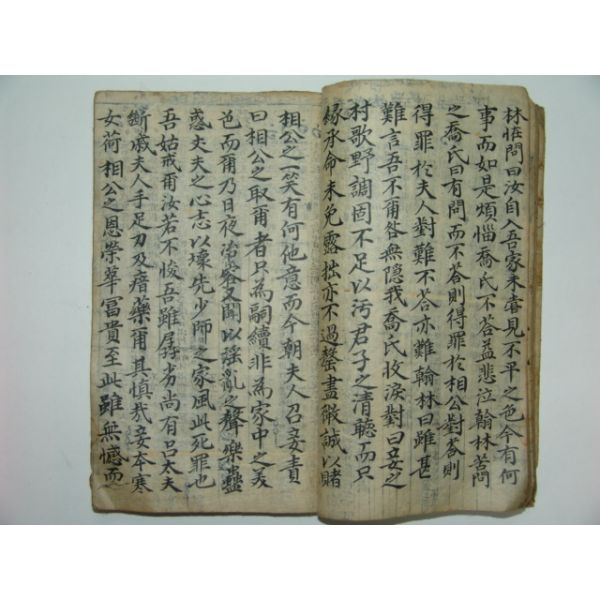 林怪問曰汝自入吾家未嘗見不平之色今有何
事而如是煩惱喬氏不答益悲泣翰林苦問
之喬氏曰有問而不答則得罪於相公對答則
得罪於夫人對難不答亦難翰林曰雖甚
難言吾不爾咎無隱我喬氏收淚對曰妾之
村歌野調固不足以污君子之清聽而只
緣承命未免露拙亦不過罄盡微誠以賭
相公之一笑有何他意而今朝夫人召妾責
曰相公之取爾者只為嗣續非為家中之美
色而爾乃日夜治容又聞以淫亂之聲樂蠱
惑丈夫之心志以壞先少師之家風此死罪也
吾姑戒爾汝若不悛吾雖孱劣尚有呂太夫
斷戚夫人手足刀及瘖藥爾其慎哉妾本寒
女荷相公之恩榮華冨貴至此雖無憾而